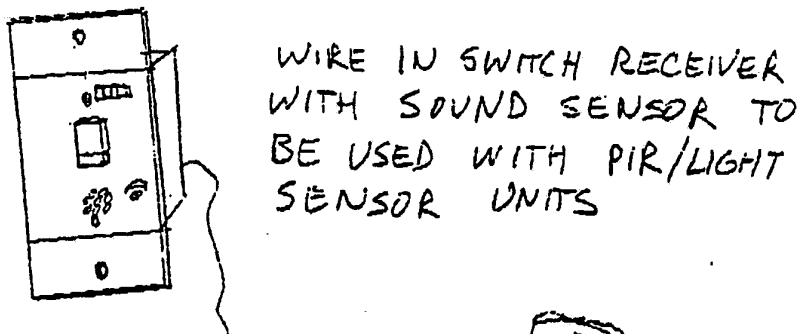 WIRE IN SWITCH RECEIVER
WITH SOUND SENSOR TO
BE USED WITH PIR/LIGHT
SENSOR UNITS